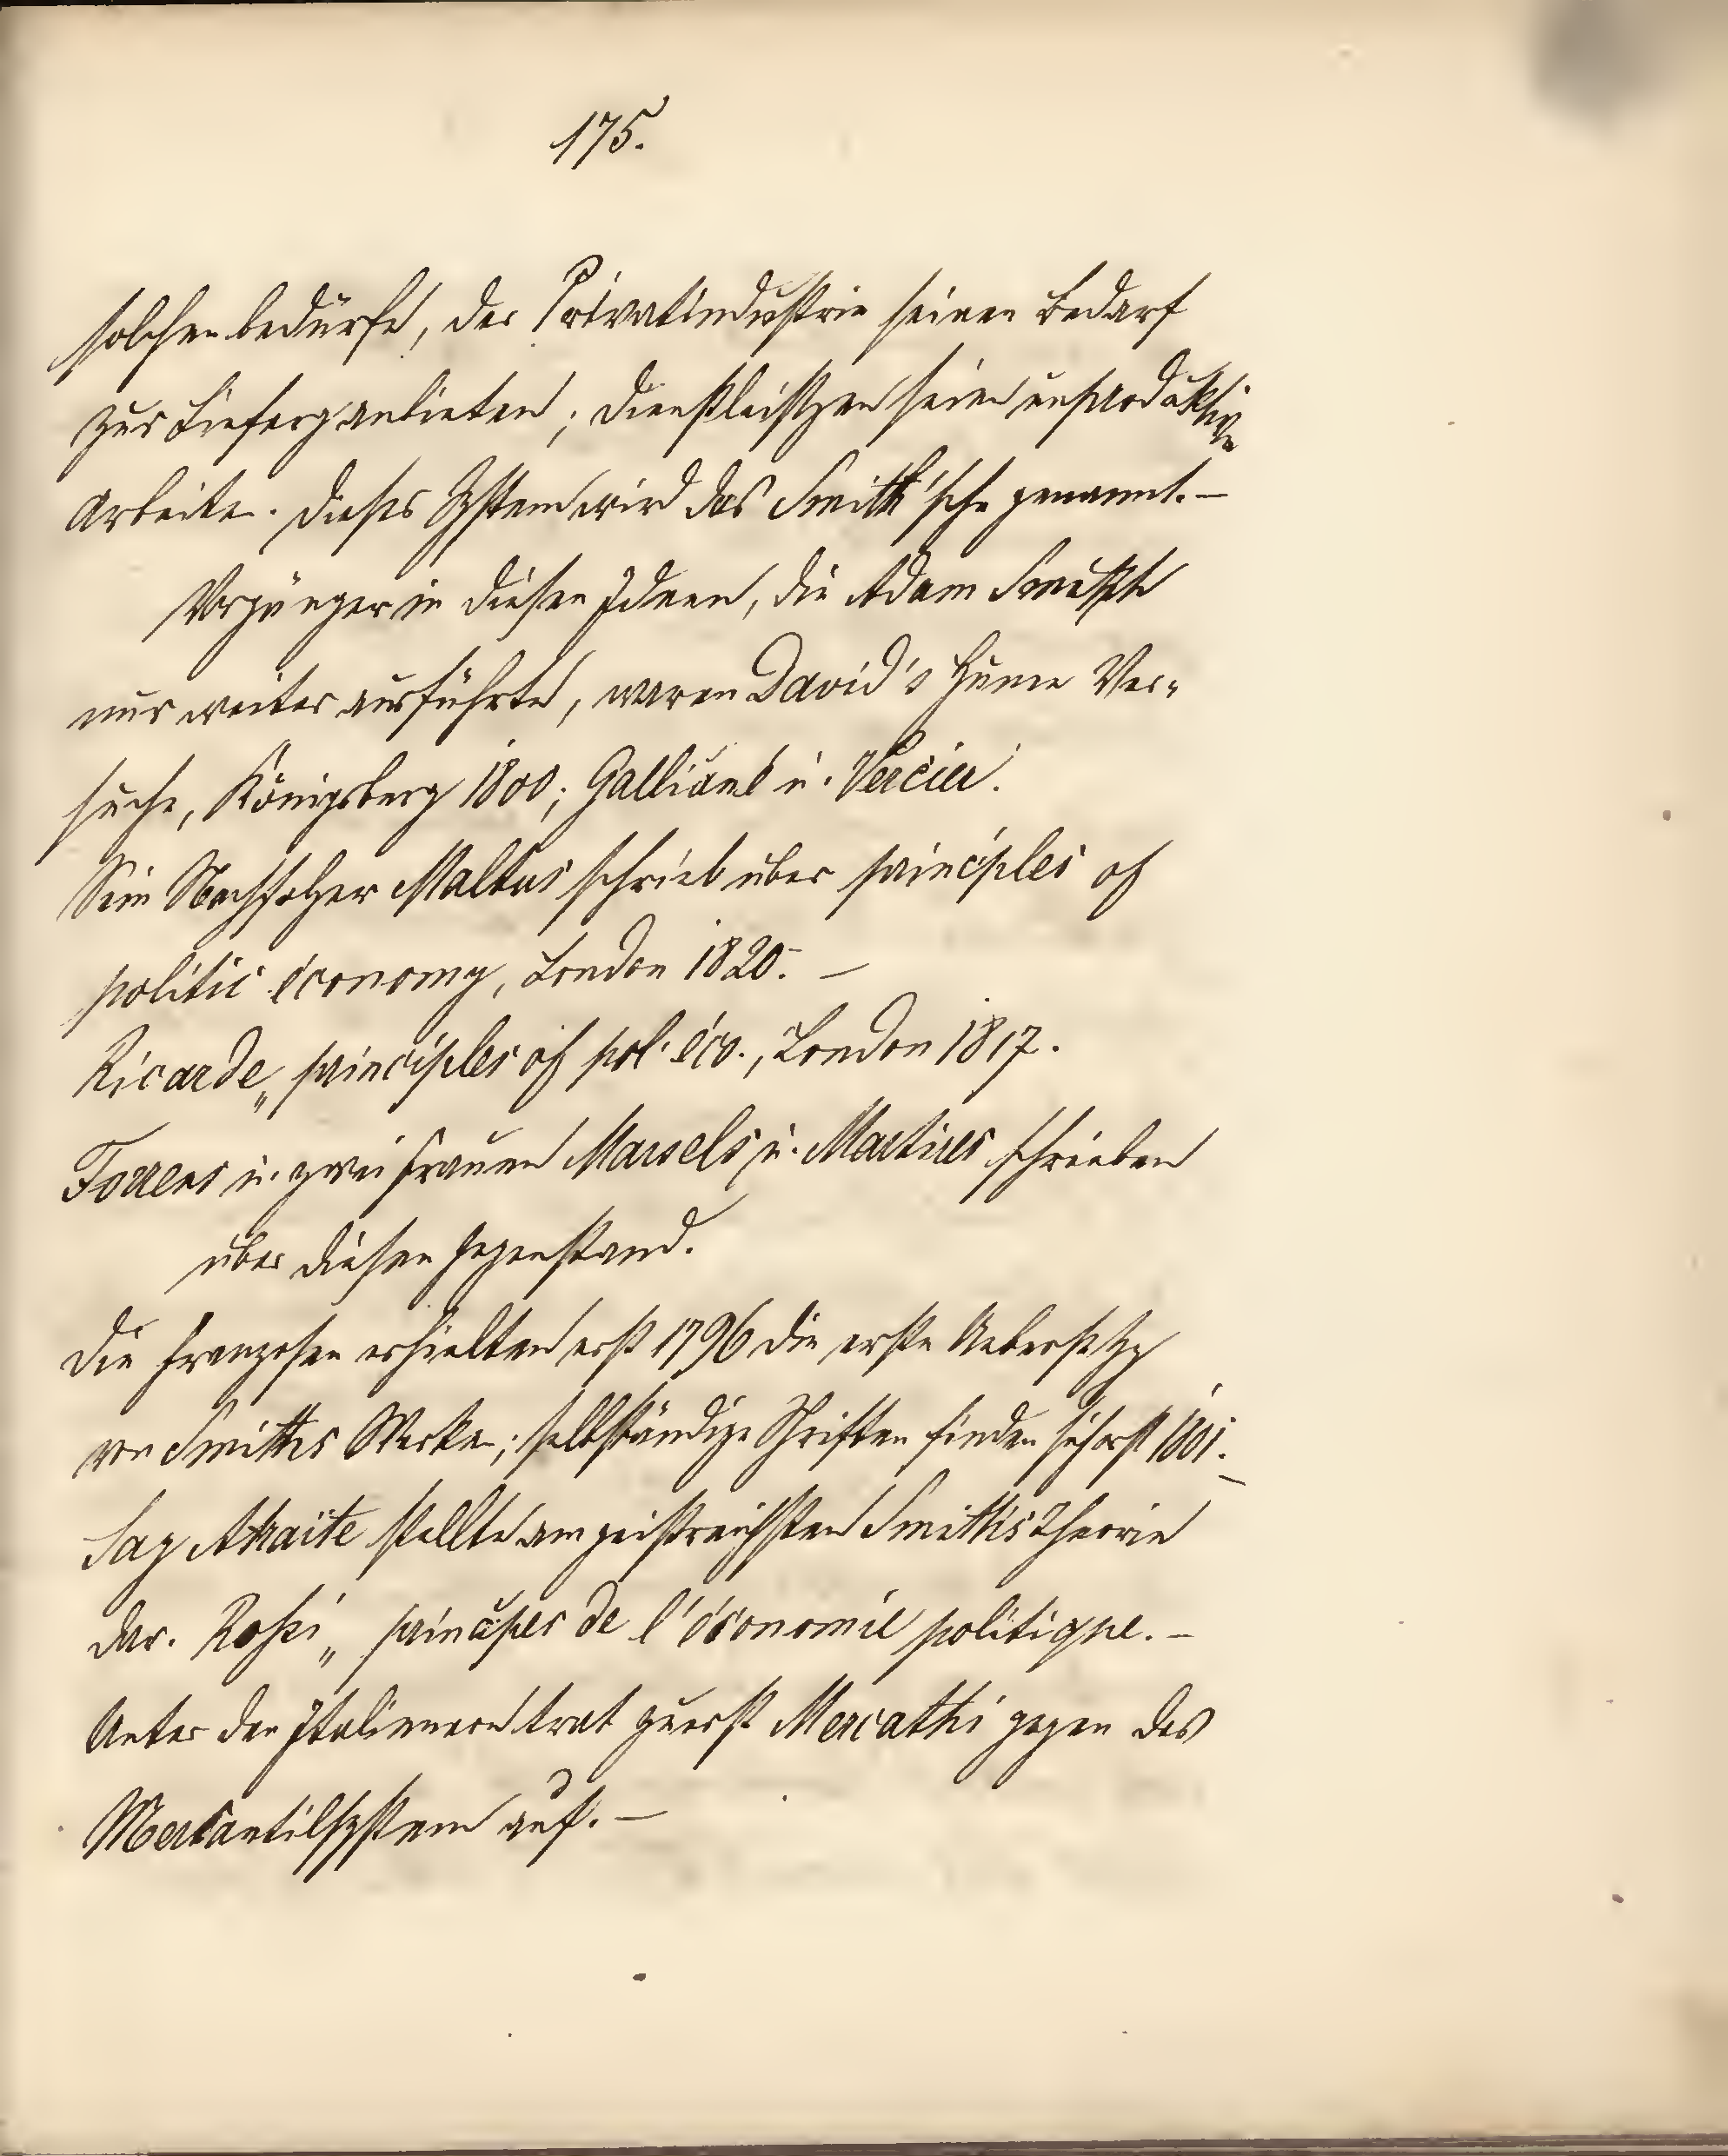 175.
solchen bedürfe, der Privatindustrie seinen Bedarf
zur Lieferg anbieten; Dienstleistgen seien unproduktive
Arbeiten. Dieses System wird das Smith'sche genannt. –
Vorgänger in diesen Ideen, die Adam Smith
nur weiter ausführte, waren David's Hume Ver-
suche, Königsberg 1800; Galliani u. Vercier.
Sein Nachfolger Maltus schrieb über principles of
politic économy, London 1820. –
Ricarde „ principles of pol. éco., London 1817.
Torrens u. zwei Frauen Marsels u. Martires schrieben
über diesen Gegenstand.
Die Franzosen erhielten erst 1796 die erste Uebersetzg
von Smiths Werken; selbständige Schriften finden sich erst 1801. –
Say stellte am geistreichsten Smith's Theorie
dar. Rossi „ principes de l'économie politique. –
Unter den Italienern trat zuerst Mercathi gegen das
Merkantilsystem auf. –